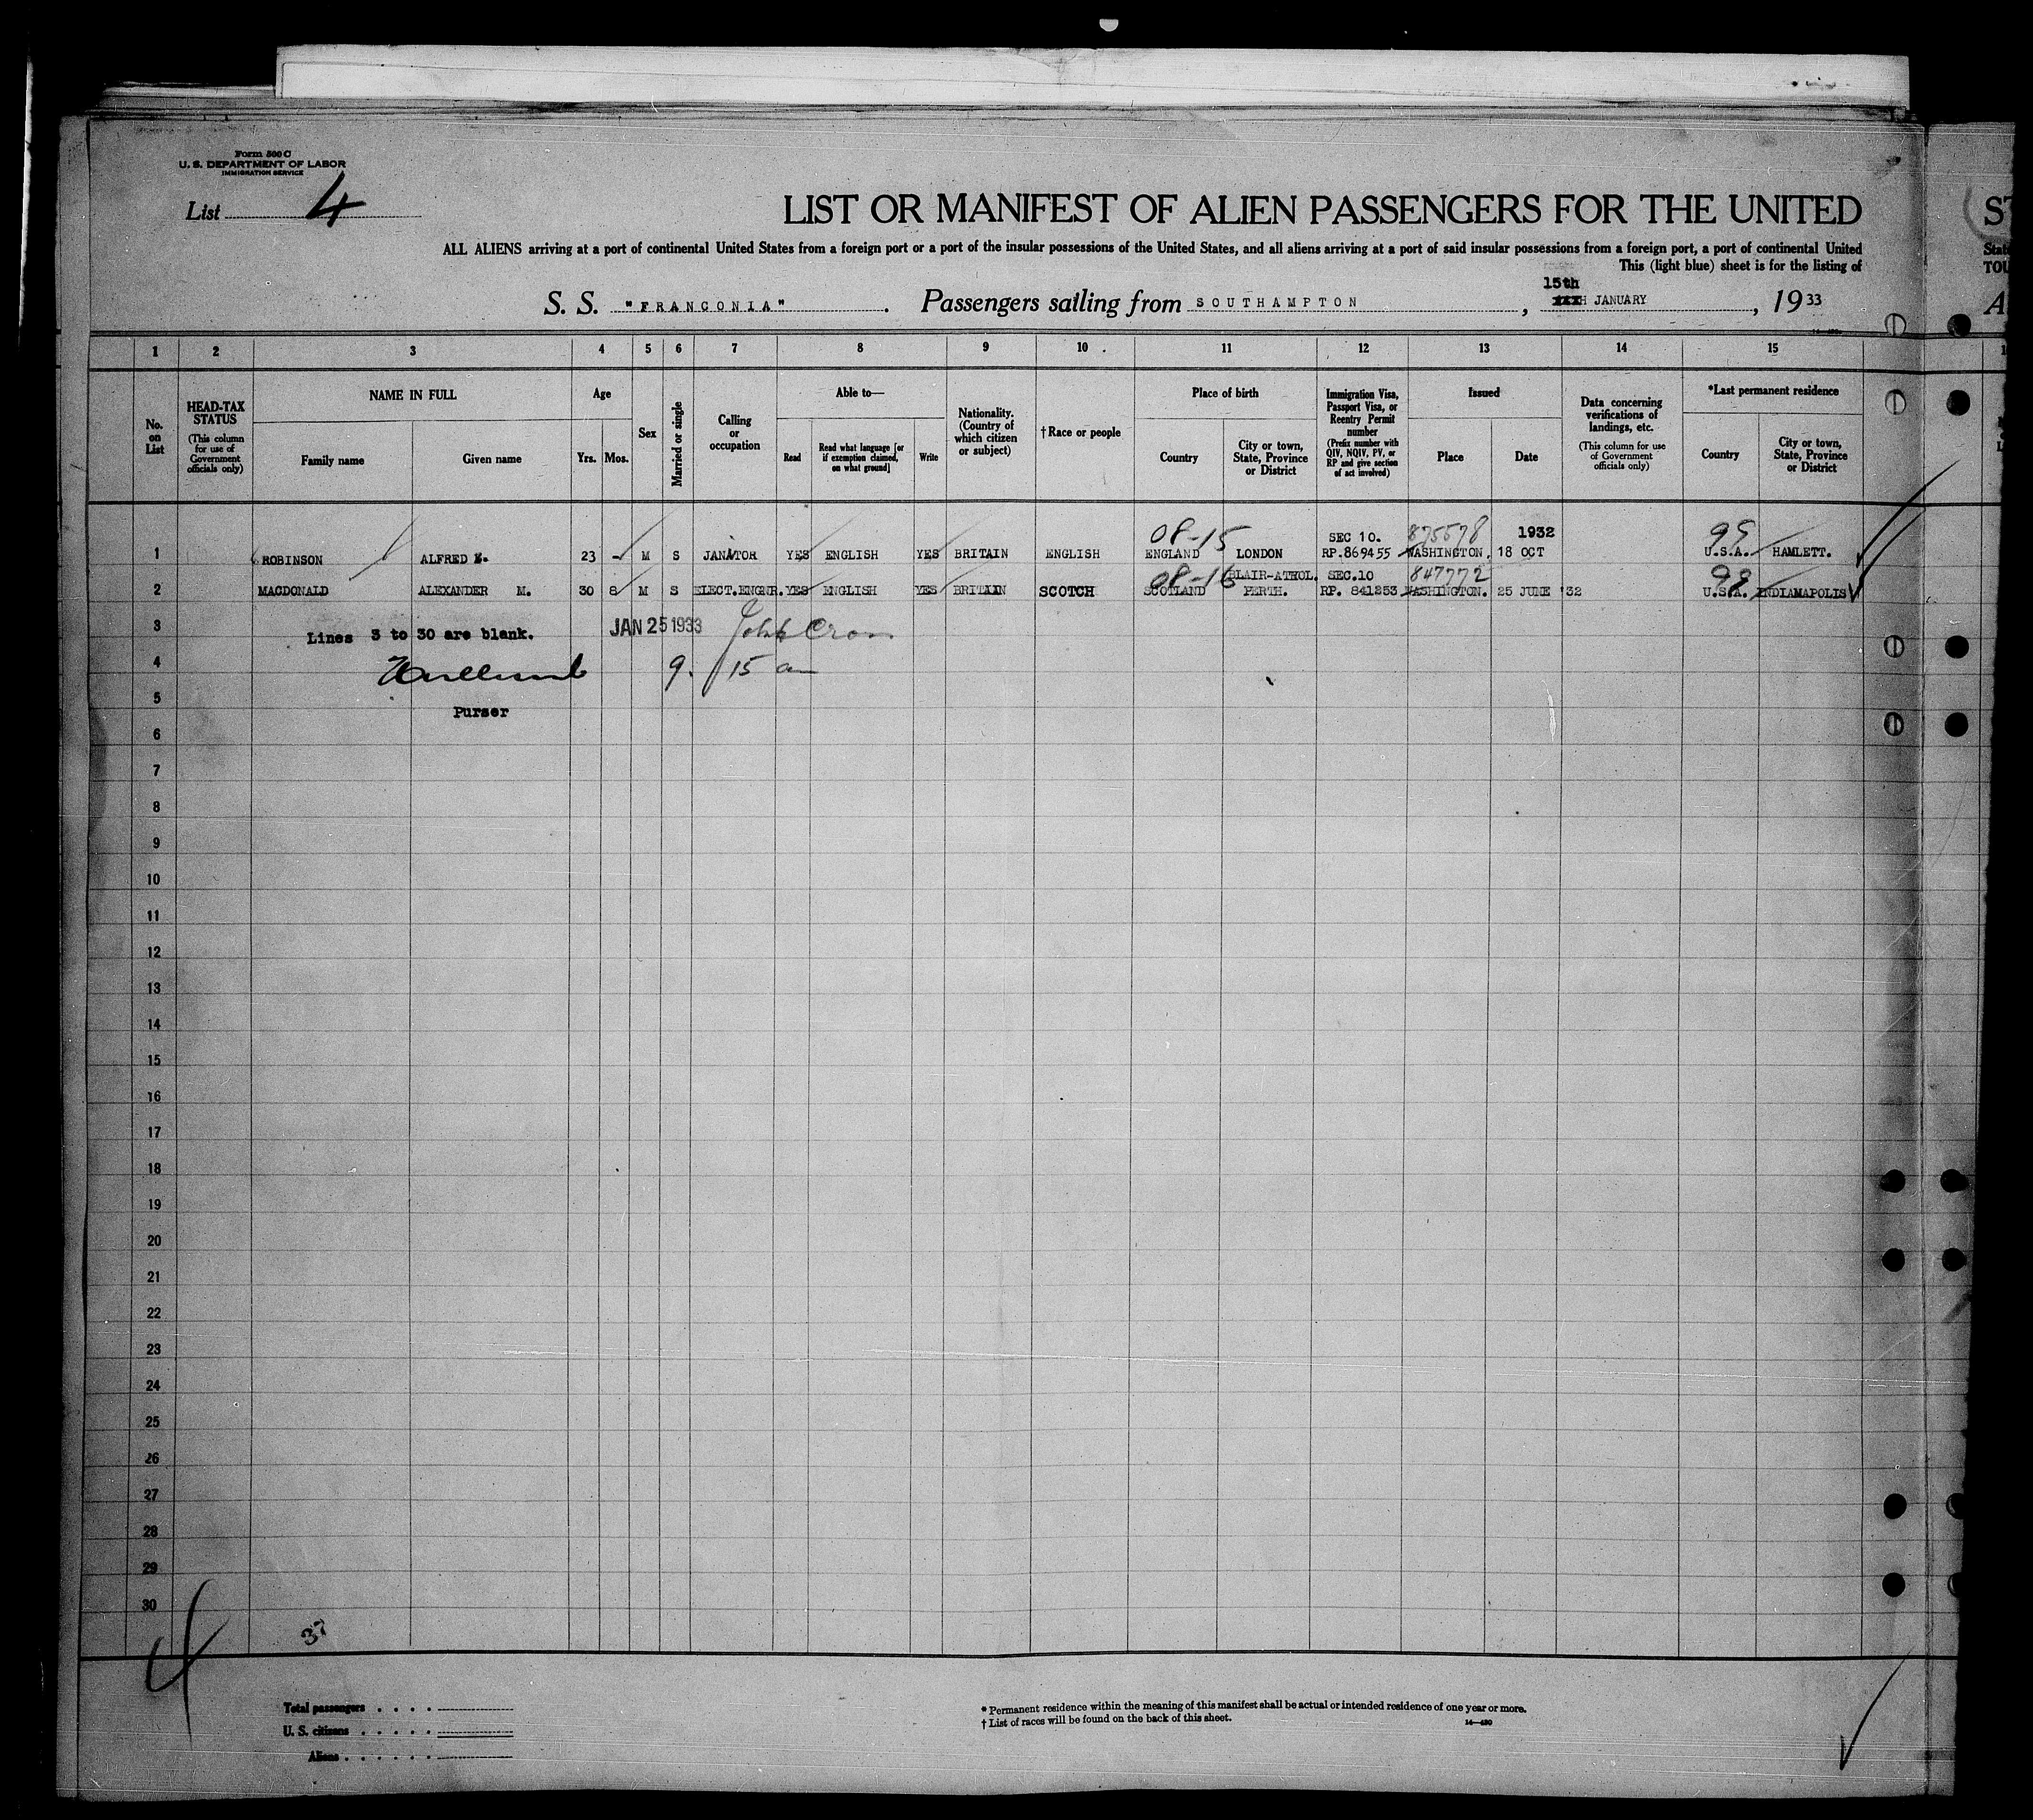 Form 500 C
U. S. DEPARTMENT OF LABOR
IMMIGRATION SERVICE
List 4
LIST OR MANIFEST OF ALIEN PASSENGERS FOR THE UNITED
ST
ALL ALIENS arriving at a port of continental United States from a foreign port or a port of the insular possessions of the United States, and all aliens arriving at a port of said insular possessions from a foreign port, a port of continental United
Stat
This (light blue) sheet is for the listing of
TOU
15th
S. S. "FRANCONIA". Passengers sailing from SOUTHAMPTON, JANUARY, 1933
A
1 2 3 4 5 6 7 8 9 10 11 12 13 14 15
No. on List
HEAD-TAX STATUS
(This column for use of Government officials only)
NAME IN FULL
Family name
Given name
Age
Yrs. Mos.
Sex
Married or single
Calling or occupation
Able to—
Read
Read what language [or if exemption claimed, on what ground]
Write
Nationality. (Country of which citizen or subject)
†Race or people
Place of birth
Country
City or town, State, Province or District
Immigration Visa, Passport Visa, or Reentry Permit number
(Prefix number with QIV, NQIV, PV, or RP and give section of act involved)
Issued
Place
Date
Data concerning verifications of landings, etc.
(This column for use of Government officials only)
*Last permanent residence
Country
City or town, State, Province or District
08-15 SEC 10. 875578 1932 99
1 ROBINSON ALFRED 23 - M S JANITOR YES ENGLISH YES BRITAIN ENGLISH ENGLAND LONDON RP.869455 WASHINGTON. 18 OCT U.S.A. HAMLETT.
08-16 BLAIR-ATHOL. SEC.10 847772 98
2 MACDONALD ALEXANDER M. 30 8 M S ELECT.ENGNR. YES ENGLISH YES BRITAIN SCOTCH SCOTLAND PERTH. RP. 841253 WASHINGTON. 25 JUNE '32 U.S.A. INDIANAPOLIS
3 Lines 3 to 30 are blank. JAN 25 1933 John
4 9.15 am
5 Purser
6
7
8
9
10
11
12
13
14
15
16
17
18
19
20
21
22
23
24
25
26
27
28
29
30
37
4
Total passengers . . . .
U. S. citizens . . . . .
Aliens . . . . . .
* Permanent residence within the meaning of this manifest shall be actual or intended residence of one year or more.
† List of races will be found on the back of this sheet.
14—430